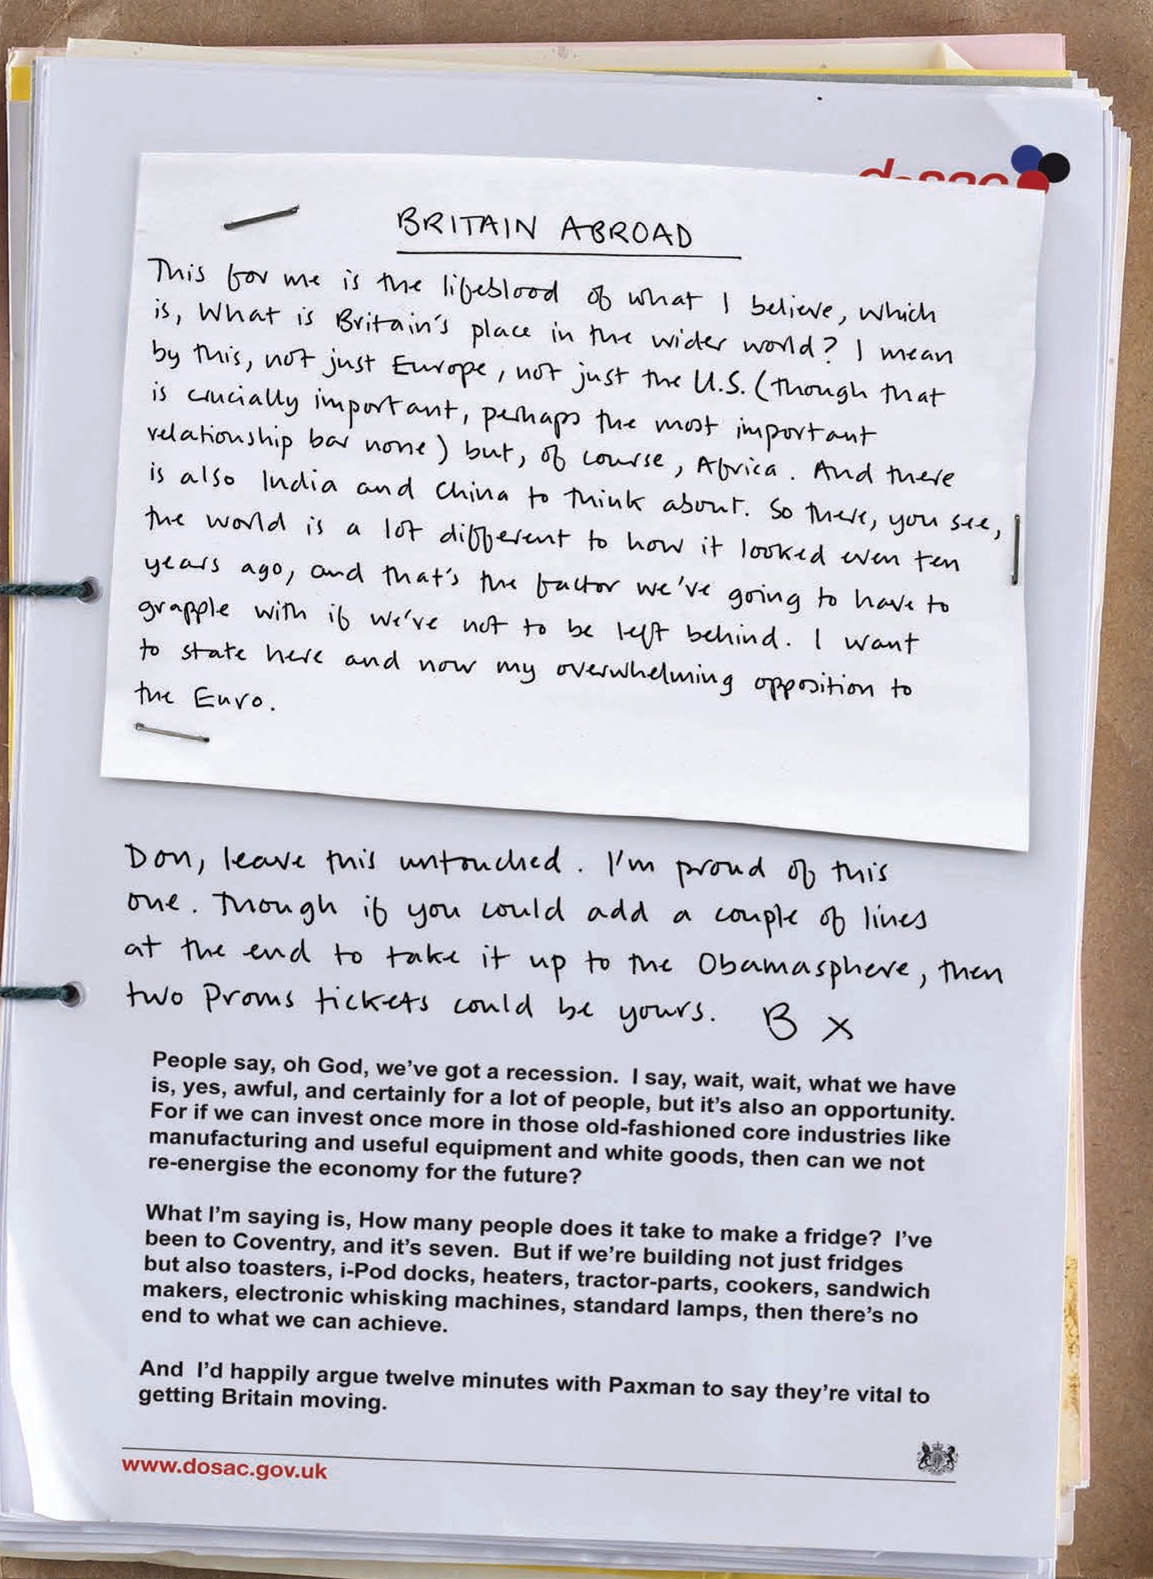 dosac
BRITAIN ABROAD
This for me is the lifeblood of what I believe, which
is, What is Britain's place in the wider world? I mean
by this, not just Europe, not just the U.S. (though that
is crucially important, perhaps the most important
relationship bar none) but, of course, Africa. And there
is also India and China to think about. So there, you see,
the world is a lot different to how it looked even ten
years ago, and that's the factor we've going to have to
grapple with if we've not to be left behind. I want
to state here and now my overwhelming opposition to
the Euro.
Don, leave this untouched. I'm proud of this
one. Though if you could add a couple of lines
at the end to take it up to the Obamasphere, then
two Proms tickets could be yours. B X
People say, oh God, we've got a recession. I say, wait, wait, what we have
is, yes, awful, and certainly for a lot of people, but it's also an opportunity.
For if we can invest once more in those old-fashioned core industries like
manufacturing and useful equipment and white goods, then can we not
re-energise the economy for the future?
What I'm saying is, How many people does it take to make a fridge? I've
been to Coventry, and it's seven. But if we're building not just fridges
but also toasters, i-Pod docks, heaters, tractor-parts, cookers, sandwich
makers, electronic whisking machines, standard lamps, then there's no
end to what we can achieve.
And I'd happily argue twelve minutes with Paxman to say they're vital to
getting Britain moving.
www.dosac.gov.uk